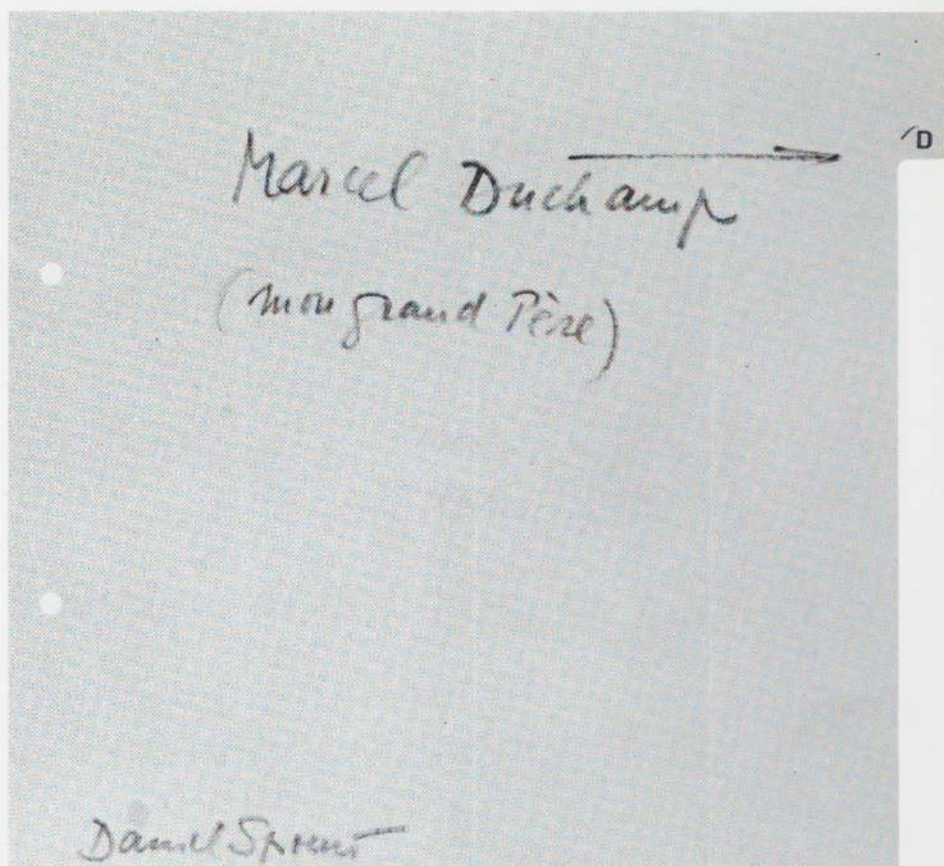 D
Marcel Duchamp
(mon grand Père)
Daniel Spoerri